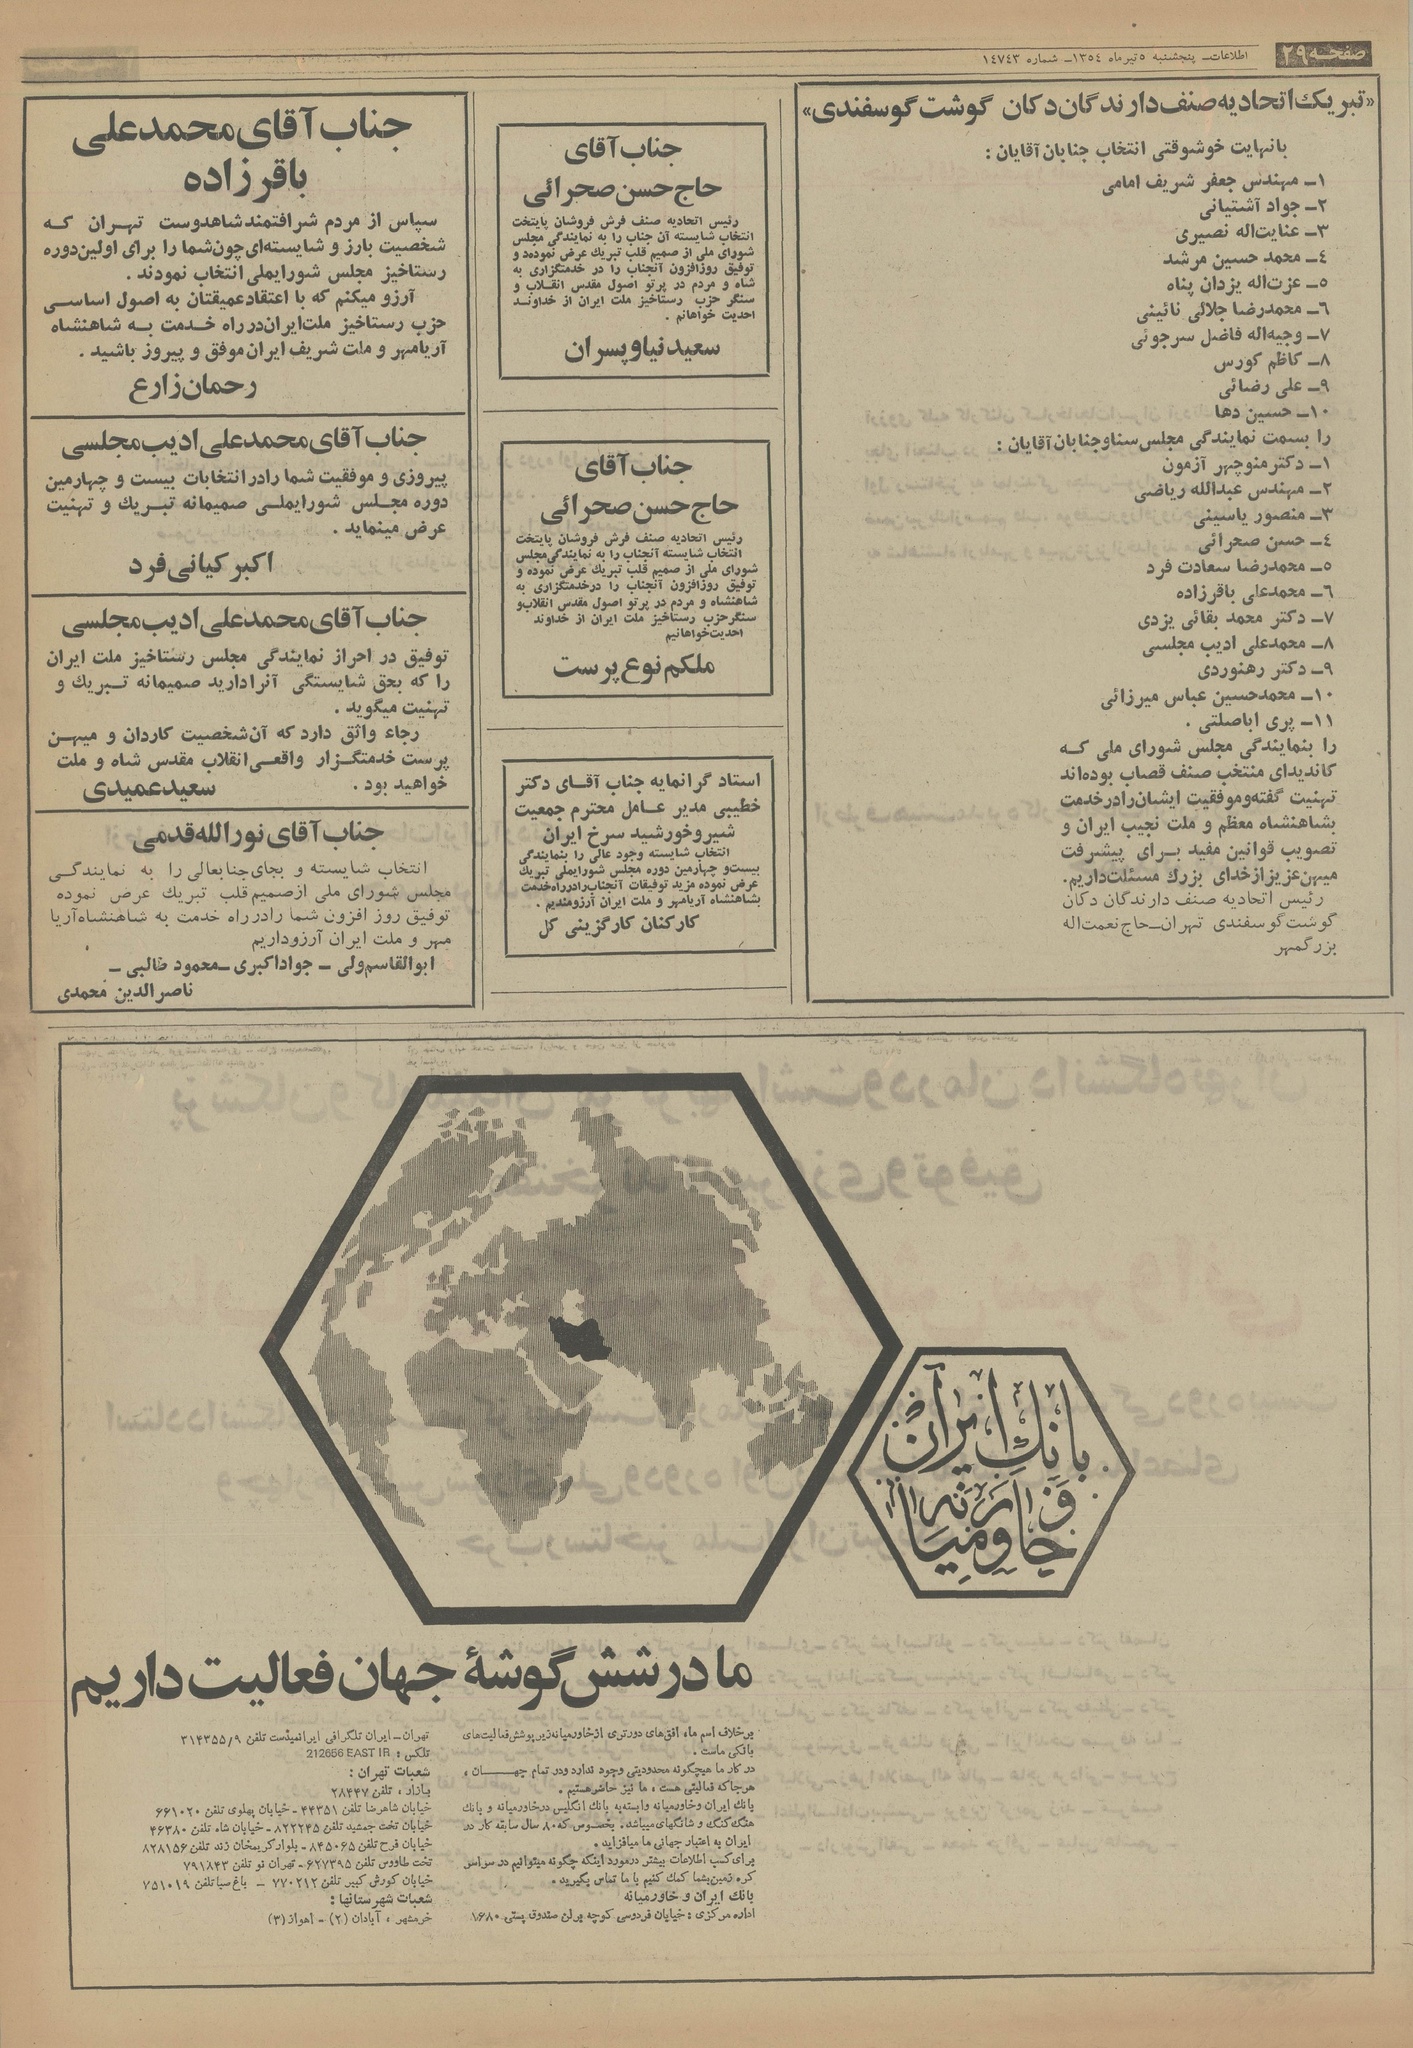 صفحه ۲۹
اطلاعات ـ پنجشنبه ۵ تیر ماه ۱۳۵۴ ـ شماره ۱۴۷۴۳
«تبریک اتحادیه صنف دارندگان دکان گوشت گوسفندی»
با نهایت خوشوقتی انتخاب جنابان آقایان :
۱ـ مهندس جعفر شریف امامی
۲ـ جواد آشتیانی
۳ـ عنایت‌اله نصیری
۴ـ محمد حسین مرشد
۵ـ عزت‌اله یزدان پناه
۶ـ محمدرضا جلالی نائینی
۷ـ وجیه‌اله فاضل سرجوئی
۸ـ کاظم کورس
۹ـ علی رضائی
۱۰ـ حسین دها
را بسمت نمایندگی مجلس سنا و جنابان آقایان :
۱ـ دکتر منوچهر آزمون
۲ـ مهندس عبدالله ریاضی
۳ـ منصور یاسینی
۴ـ حسن صحرائی
۵ـ محمدرضا سعادت فرد
۶ـ محمدعلی باقرزاده
۷ـ دکتر محمد بقائی یزدی
۸ـ محمدعلی ادیب مجلسی
۹ـ دکتر رهنوردی
۱۰ـ محمدحسین عباس میرزائی
۱۱ـ پری اباصلتی .
را بنمایندگی مجلس شورای ملی که
کاندیدای منتخب صنف قصاب بوده‌اند
تهنیت گفته و موفقیت ایشان را در خدمت
بشاهنشاه معظم و ملت نجیب ایران و
تصویب قوانین مفید برای پیشرفت
میهن عزیز از خدای بزرگ مسئلت داریم.
رئیس اتحادیه صنف دارندگان دکان
گوشت گوسفندی تهران ـ حاج نعمت‌اله
بزرگمهر
جناب آقای
حاج حسن صحرائی
رئیس اتحادیه صنف فرش فروشان پایتخت
انتخاب شایسته آن جناب را به نمایندگی مجلس
شورای ملی از صمیم قلب تبریک عرض نموده و
توفیق روزافزون آنجناب را در خدمتگزاری به
شاه و مردم در پرتو اصول مقدس انقلاب و
سنگر حزب رستاخیز ملت ایران از خداوند
احدیت خواهانم .
سعید نیا و پسران
جناب آقای
حاج حسن صحرائی
رئیس اتحادیه صنف فرش فروشان پایتخت
انتخاب شایسته آنجناب را به نمایندگی مجلس
شورای ملی از صمیم قلب تبریک عرض نموده و
توفیق روزافزون آنجناب را در خدمتگزاری به
شاهنشاه و مردم در پرتو اصول مقدس انقلاب و
سنگر حزب رستاخیز ملت ایران از خداوند
احدیت خواهانیم
ملکم نوع پرست
استاد گرانمایه جناب آقای دکتر
خطیبی مدیر عامل محترم جمعیت
شیر و خورشید سرخ ایران
انتخاب شایسته وجود عالی را بنمایندگی
بیست و چهارمین دوره مجلس شورایملی تبریک
عرض نموده مزید توفیقات آنجناب را در راه خدمت
بشاهنشاه آریامهر و ملت ایران آرزومندیم .
کارکنان کارگزینی کل
جناب آقای محمدعلی
باقرزاده
سپاس از مردم شرافتمند شاهدوست تهران که
شخصیت بارز و شایسته‌ای چون شما را برای اولین دوره
رستاخیز مجلس شورایملی انتخاب نمودند .
آرزو میکنم که با اعتقاد عمیقتان به اصول اساسی
حزب رستاخیز ملت ایران در راه خدمت به شاهنشاه
آریامهر و ملت شریف ایران موفق و پیروز باشید .
رحمان زارع
جناب آقای محمدعلی ادیب مجلسی
پیروزی و موفقیت شما را در انتخابات بیست و چهارمین
دوره مجلس شورایملی صمیمانه تبریک و تهنیت
عرض مینماید .
اکبر کیانی فرد
جناب آقای محمدعلی ادیب مجلسی
توفیق در احراز نمایندگی مجلس رستاخیز ملت ایران
را که بحق شایستگی آنرا دارید صمیمانه تبریک و
تهنیت میگوید .
رجاء واثق دارد که آن شخصیت کاردان و میهن
پرست خدمتگزار واقعی انقلاب مقدس شاه و ملت
خواهید بود . سعید عمیدی
جناب آقای نورالله قدمی
انتخاب شایسته و بجای جنابعالی را به نمایندگی
مجلس شورای ملی از صمیم قلب تبریک عرض نموده
توفیق روز افزون شما را در راه خدمت به شاهنشاه آریا
مهر و ملت ایران آرزو داریم
ابوالقاسم ولی ـ جواد اکبری ـ محمود طالبی ـ
ناصرالدین محمدی
بانک ایران
و خاورمیانه
ما در شش گوشهٔ جهان فعالیت داریم
برخلاف اسم ما، افق‌های دورتری از خاورمیانه زیر پوشش فعالیت‌های
بانکی ماست .
در کار ما هیچگونه محدودیتی وجود ندارد و در تمام جهان ،
هرجا که فعالیتی هست ، ما نیز حاضر هستیم .
بانک ایران و خاورمیانه وابسته به بانک انگلیس در خاورمیانه و بانک
هنگ کنگ و شانگهای میباشد. بخصوص که ۸۰ سال سابقه کار در
ایران به اعتبار جهانی ما میافزاید .
برای کسب اطلاعات بیشتر در مورد اینکه چگونه میتوانیم در سراسر
کره زمین بشما کمک کنیم با ما تماس بگیرید .
بانک ایران و خاورمیانه
اداره مرکزی : خیابان فردوسی کوچه برلن صندوق پستی ۱۶۸۰
تهران ـ ایران تلگرافی ایرانمیدست تلفن ۳۱۴۳۵۵/۹
تلکس : 212656 EAST IR
شعبات تهران :
بازار ، تلفن ۲۸۴۴۷
خیابان شاهرضا تلفن ۴۴۳۵۱ ـ خیابان پهلوی تلفن ۶۶۱۰۲۰
خیابان تخت جمشید تلفن ۸۲۲۲۴۵ ـ خیابان شاه تلفن ۴۶۳۸۰
خیابان فرح تلفن ۸۴۵۰۶۵ ـ بلوار کریمخان زند تلفن ۸۲۸۱۵۶
تخت طاووس تلفن ۶۲۷۳۹۵ ـ تهران نو تلفن ۷۹۱۸۴۳
خیابان کورش کبیر تلفن ۷۷۰۲۱۲ ـ باغ صبا تلفن ۷۵۱۰۱۹
شعبات شهرستانها :
خرمشهر ، آبادان (۲) ـ اهواز (۳)